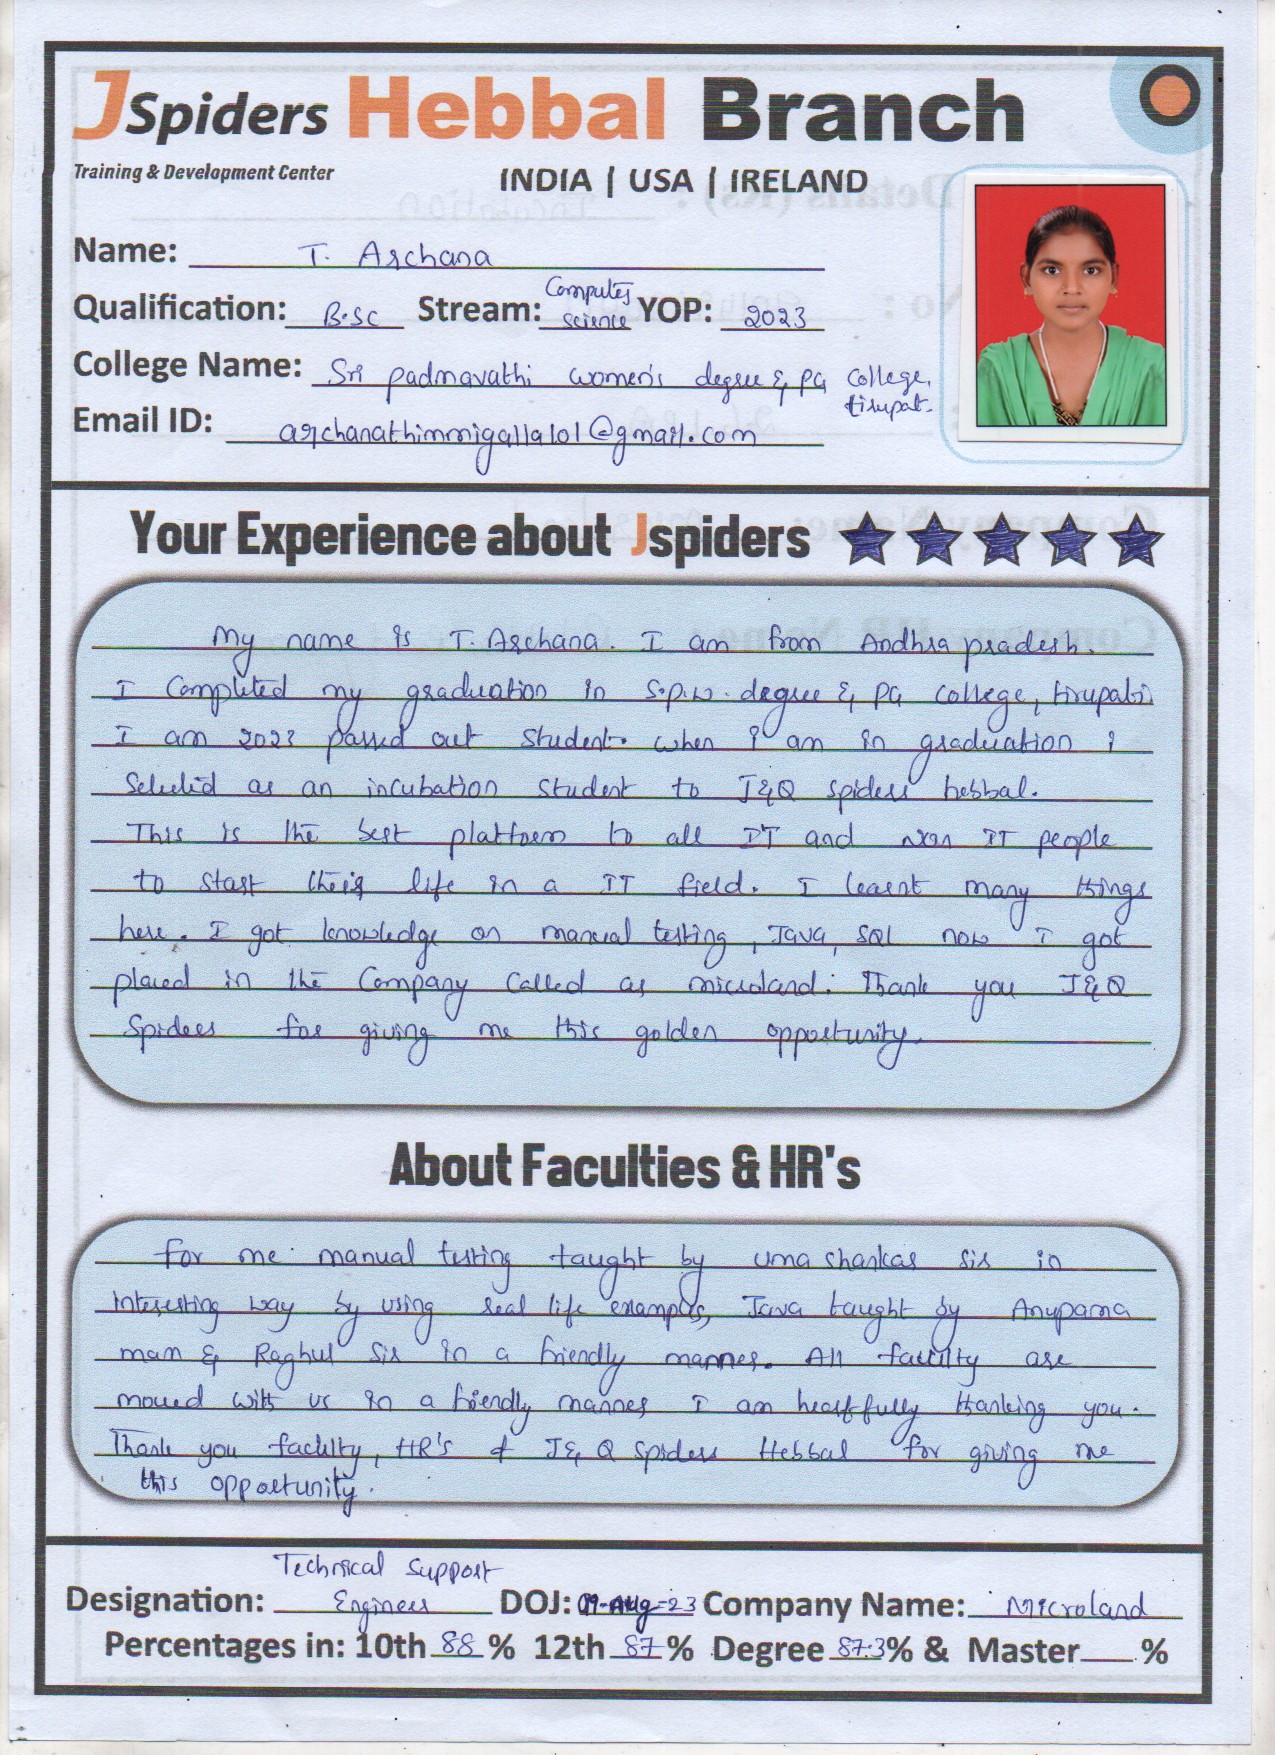 JSpiders Hebbal Branch
Training & Development Center
INDIA | USA | IRELAND
Name: T. Archana
Qualification: B.Sc Stream: Computer Science YOP: 2023
College Name: Sri padmavathi women's degree & PG College, tirupat.
Email ID: archanathimmigalla101@gmail.com
Your Experience about Jspiders
My name is T. Archana. I am from Andhra pradesh.
I Completed my graduation in S.P.W. degree & PG College, tirupati.
I am 2023 passed out student. when I am in graduation I
Selected as an incubation student to J&Q spiders hebbal.
This is the best platform to all IT and non IT people
to start their life in a IT field. I learnt many things
here. I got knowledge on manual testing, Java, SQL now I got
placed in the Company Called as microland. Thank you J&Q
Spiders for giving me this golden opportunity.
About Faculties & HR's
For me manual testing taught by uma shankar sir in
Interesting way by using real life examples, Java taught by Anupama
mam & Raghul Sir in a friendly manner. All facility are
moved with us in a friendly manner I am heartfully thanking you.
Thank you facility, HR's & J& Q Spiders Hebbal for giving me
this opportunity.
Designation: Technical Support Engineer DOJ: 09-Aug-23 Company Name: Microland
Percentages in: 10th 88 % 12th 87 % Degree 87.3% & Master %